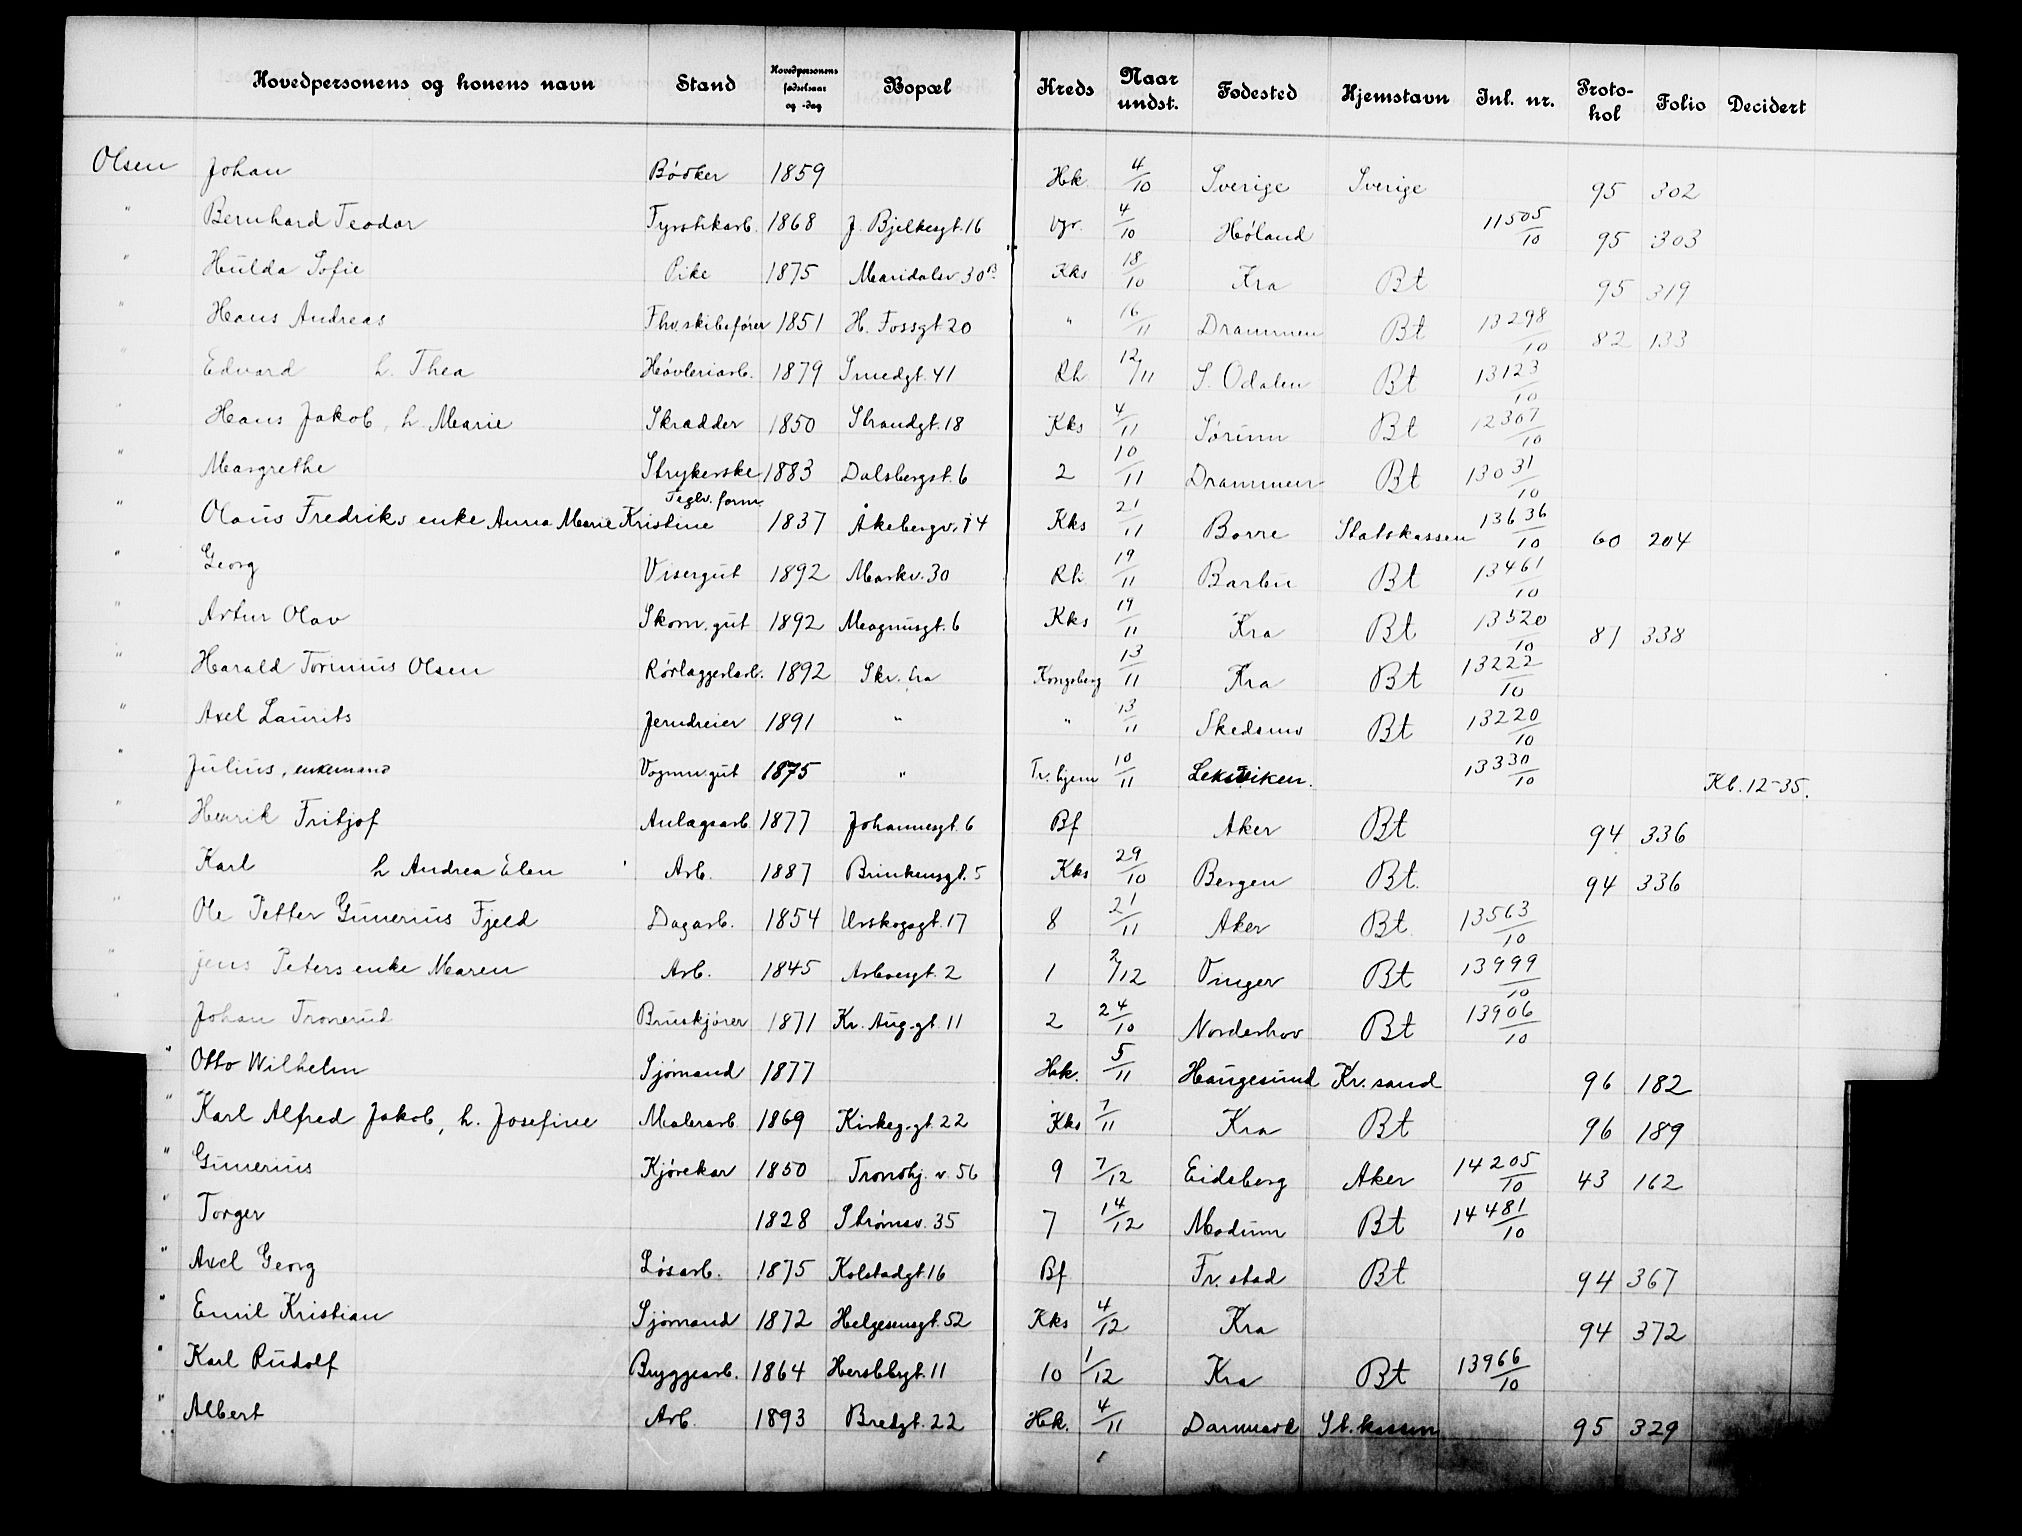 Hovedpersonens og konens navn Stand Hovedpersonens fødselsaar og -dag Bopæl Kreds Naar undst. Fødested Hjemstavn Inl. nr. Protokol Folio Decidert
Olsen Johan Bödker 1859 Hk. 4/10 Sverige Sverige 95 302
" Bernhard Teodor Fyrstikarb. 1868 J. Bjelkesgt. 16 Vgr. 4/10 Høland 11505/10 95 303
" Hulda Sofie Pike 1875 Maridalsv 30 B Kks 18/10 Kra Bt 95 319
" Hans Andreas Fhv. skibsfører 1851 H. Fossgt 20 " 16/11 Drammen Bt 13298/10 82 133
" Edvard h. Thea Høvleriarb. 1879 Smedgt. 41 Rh 12/11 S. Odalen Bt 13123/10
" Hans Jakob, h. Marie Skrædder 1850 Strandgt. 18 Kks 4/11 Sörum Bt 12367/10
" Margrethe Strykerske 1883 Dalsbergst. 6 2 10/11 Drammen Bt 13031/10
" Olaus Fredriks enke Anna Marie Kristine Teglv. form. 1837 Åkebergv. 14 Kks 21/11 Borre Statskassen 13636/10 60 204
" Georg Visergut 1892 Markv. 30 Rh 19/11 Barbu Bt 13461/10
" Artur Olav Skom. gut 1892 Magnusgt. 6 Kks 19/11 Kra Bt 13520/10 87 338
" Harald Torinius Olsen Rørlæggerlærl. 1892 Skr. fra Kongsberg 13/11 Kra Bt 13222/10
" Axel Laurits Jerndreier 1891 " " 13/11 Skedsmo Bt 13220/10
" Julius, enkemand Vognm. gut 1875 " Tr. hjem 10/11 Leksviken. 13330/10 Kb. 12-35.
" Henrik Fritjof Anlægsarb. 1877 Johannesgt. 6 Bf Aker Bt 94 336
" Karl h Andrea Elen Arb. 1887 Brinkensgt. 5 Kks 29/10 Bergen Bt. 94 336
" Ole Petter Gunerius Fjeld Dagarb. 1854 Urskogsgt. 17 8 21/11 Aker Bt 13563/10
" Jens Peters enke Maren Arb. 1845 Arboesgt. 2 1 2/12 Vinger Bt 13999/10
" Johan Tronerud Bruskjører 1871 Kr. Aug. gt. 11 2 24/10 Norderhov Bt 13906/10
" Otto Wilhelm Sjømand 1877 Hk. 5/11 Haugesund Kr. sand 96 182
" Karl Alfred Jakob, h. Josefine Malerarb. 1869 Kirkeg. gt. 22 Kks 7/11 Kra Bt 96 189
" Gunerius Kjørekar 1850 Trondhj. v. 56 9 7/12 Eidsberg Aker 14205/10 43 162
" Torger 1828 Strømsv. 35 7 14/12 Modum Bt 14481/10
" Axel Georg Løsarb. 1875 Kolstadgt. 16 Bf Fr. stad Bt 94 367
" Emil Kristian Sjømand 1872 Helgesensgt. 52 Kks 4/12 Kra 94 372
" Karl Rudolf Bryggearb. 1864 Herslebsgt. 11 10 1/12 Kra Bt 13966/10
" Albert Arb. 1893 Bredgt. 22 Hk. 4/11 Danmark St. kassen 95 329